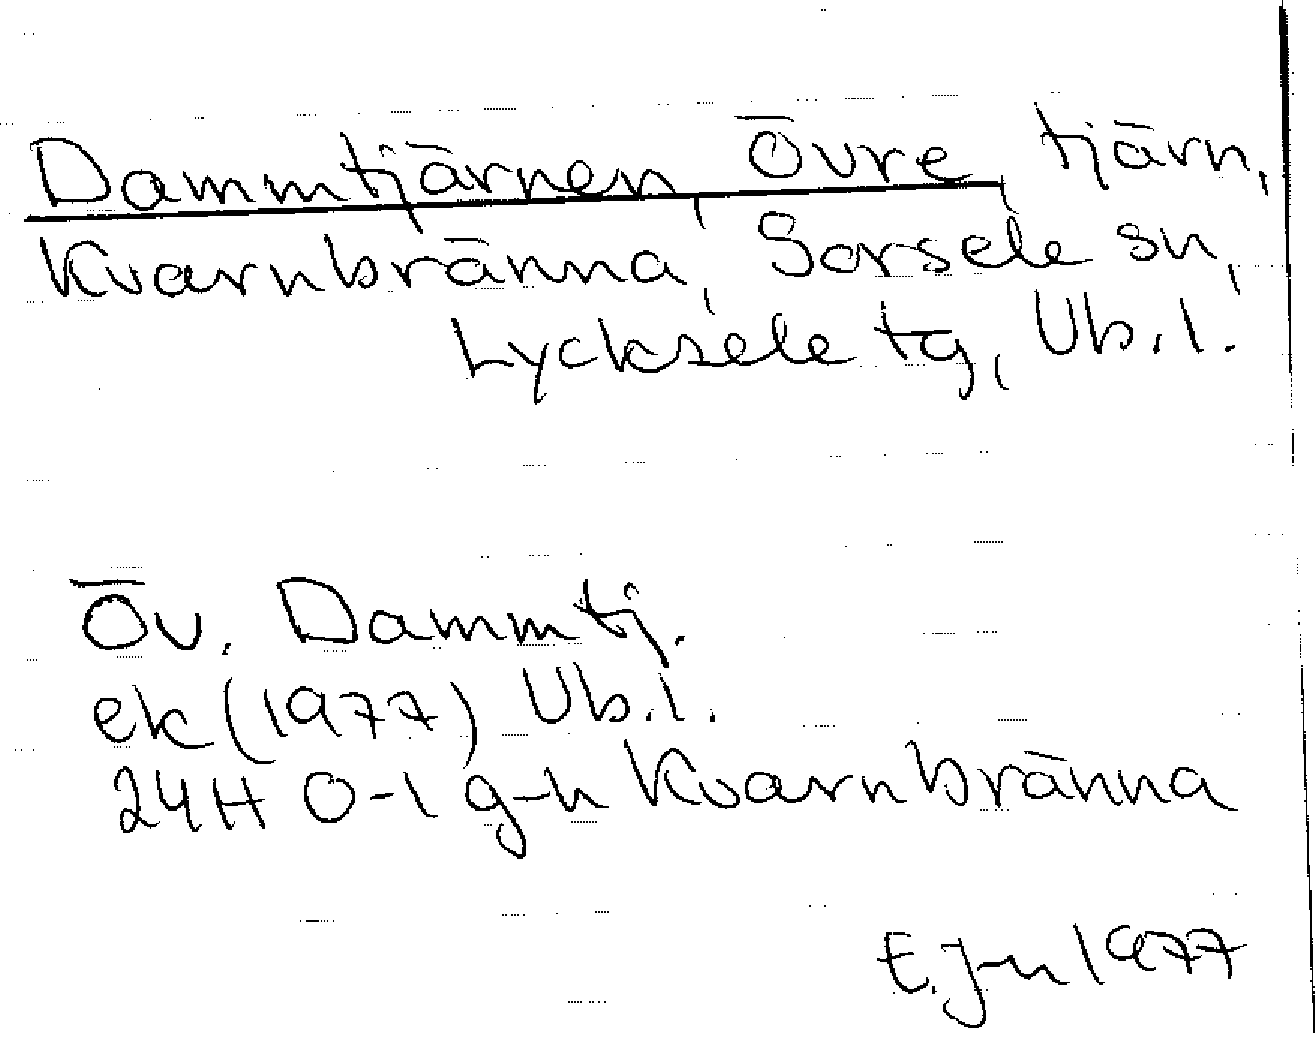 Dammtjärnen, Övre, tjärn,
Kvarnbränna, Sorsele sn,
Lycksele tg, Vb.l.
Öv. Dammtj.
ek (1977) Vb.l.
24H 0-1 g-h Kvarnbränna
E.J-n 1977